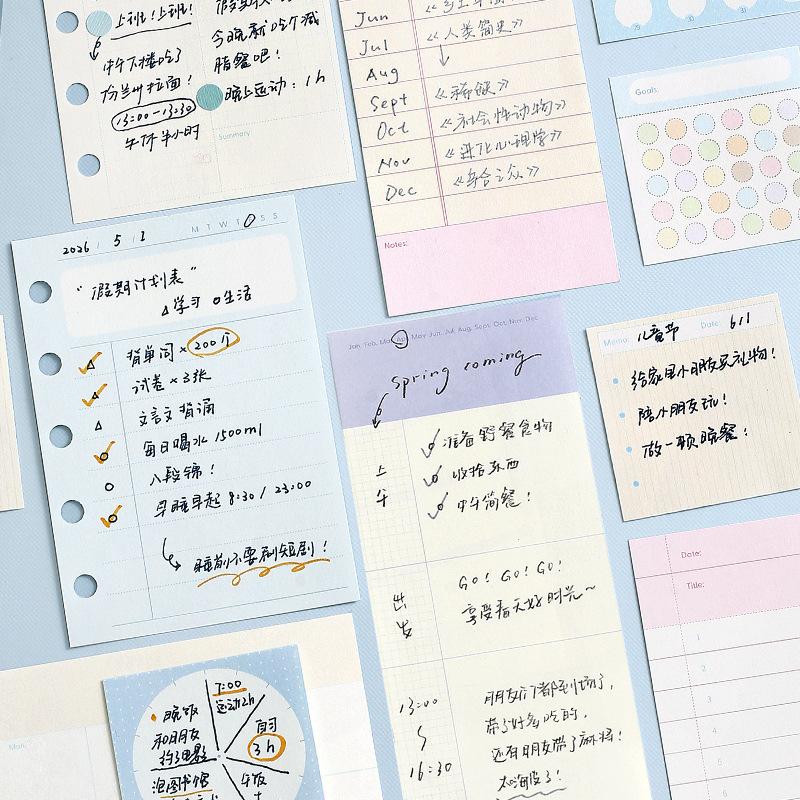 上班!上班!
中午不楼吃了
份兰州拉面!
13:00-13:30
午休半小时
今晚就吃个减
脂餐吧!
晚上运动: 1h
Summary
Jun
Jul 《人类简史》
Aug
Sept 《稀缺》
Oct 《社会性动物》
Nov 《进化心理学》
Dec 《乌合之众》
Notes:
29 30 31
Goals:
2026 / 5 / 1 M T W T S S
"假期计划表"
△学习 O生活
背单词 × 200个
试卷 × 3张
文言文背诵
每日喝水 1500ml
八段锦!
早睡早起 8:30 / 23:00
睡前不要刷短剧!
Jan. Feb. Mar. Apr. May. Jun. Jul. Aug. Sept. Oct. Nov. Dec
Spring coming
上午
准备野餐食物
收拾东西
中午简餐!
出发
GO! GO! GO!
享受春天好时光~
13:00
16:30
朋友们都到场了,
带了好多吃的,
还有朋友带了麻将!
太海皮了!
Memo: 儿童节 Date 6/1
给家里小朋友买礼物!
陪小朋友玩!
做一顿晚餐!
Date:
Title:
1
2
3
4
5
6
Mon.
7:00
运动2h
自习
3h
午饭
晚饭
和朋友
约了电影
泡图书馆